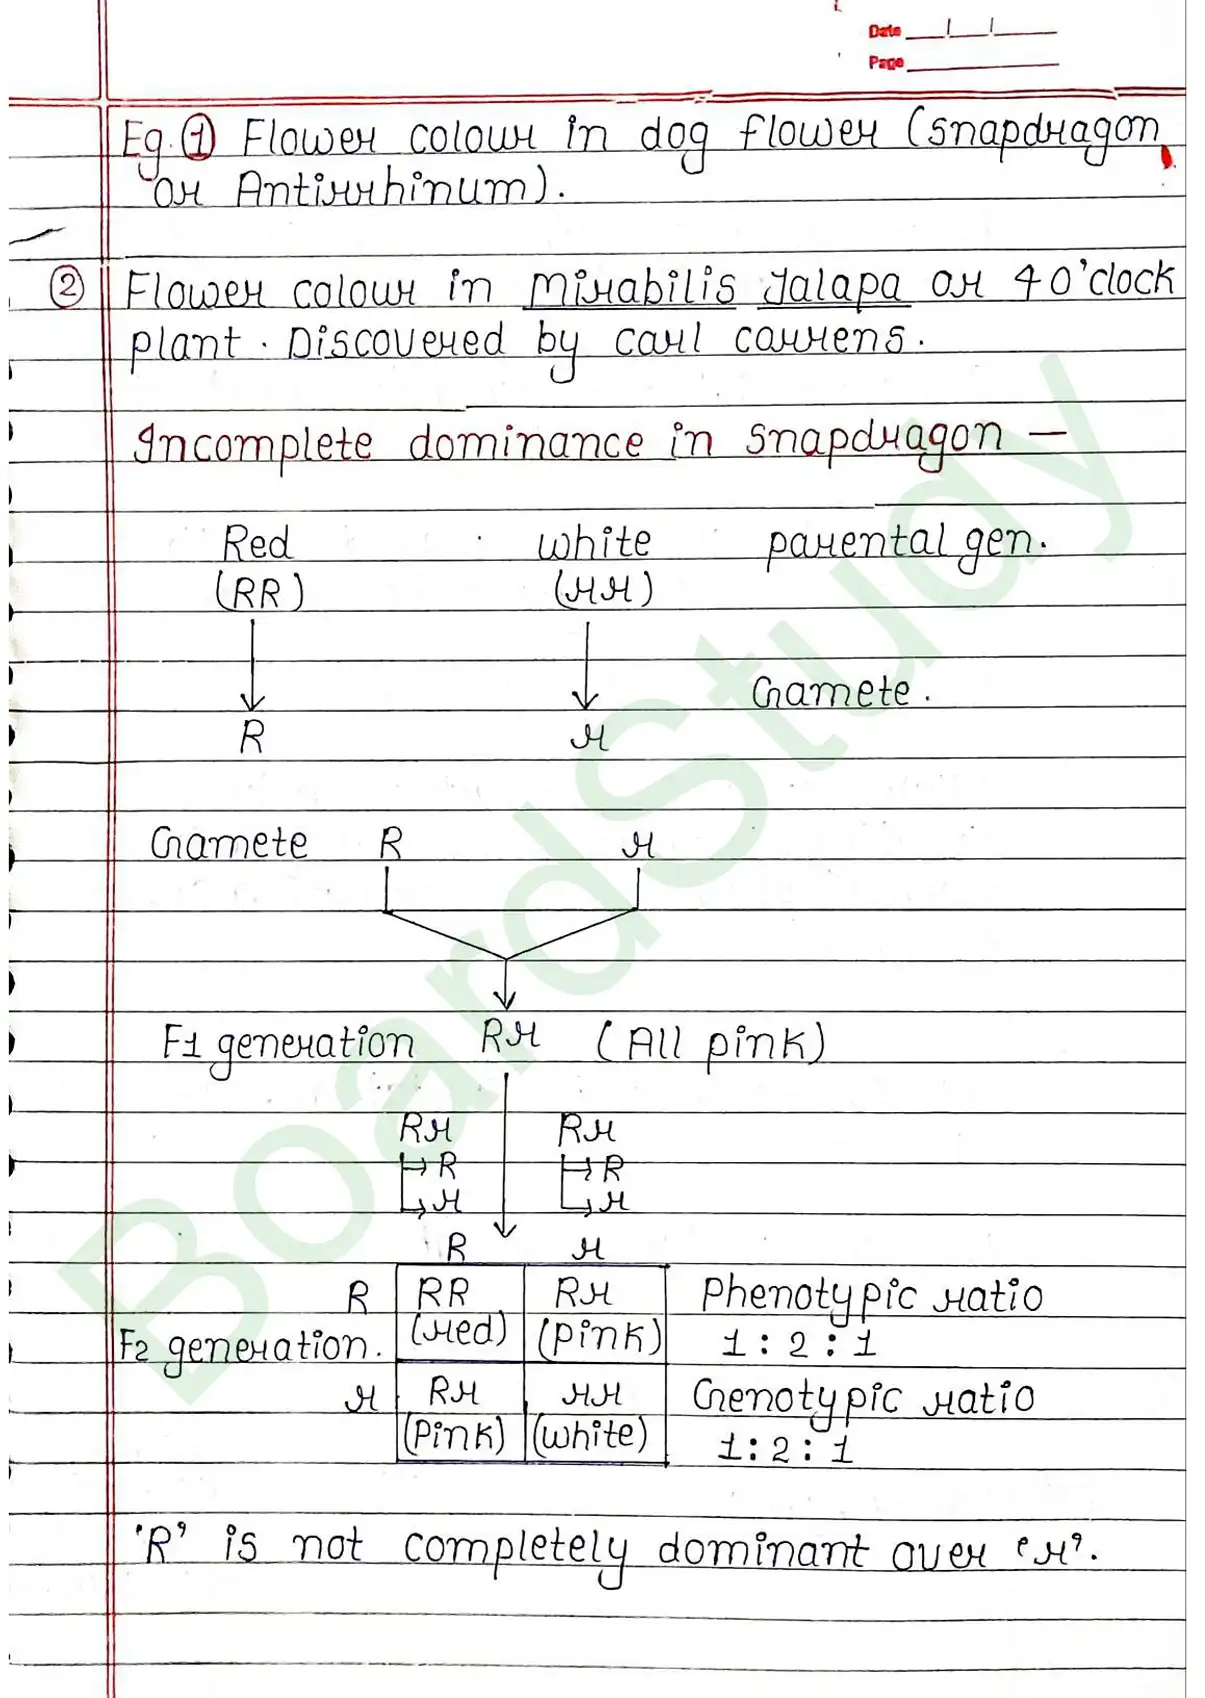 Date
Page
Eg. ① Flower colour in dog flower (Snapdragon
or Antirrhinum).
② Flower colour in Mirabilis Jalapa or 4 O'clock
plant. Discovered by carl correns.
Incomplete dominance in snapdragon —
Red white parental gen.
(RR) (rr)
Gamete.
R r
Gamete R r
F1 generation Rr (All pink)
Rr Rr
R R
r r
R r
R RR Rr Phenotypic ratio
F2 generation. (red) (pink) 1 : 2 : 1
r Rr rr Genotypic ratio
(Pink) (white) 1 : 2 : 1
'R' is not completely dominant over 'r'.
BoardStudy